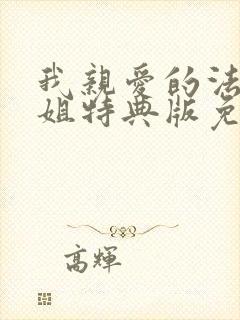 我親愛的法
姐特典版免
高輝